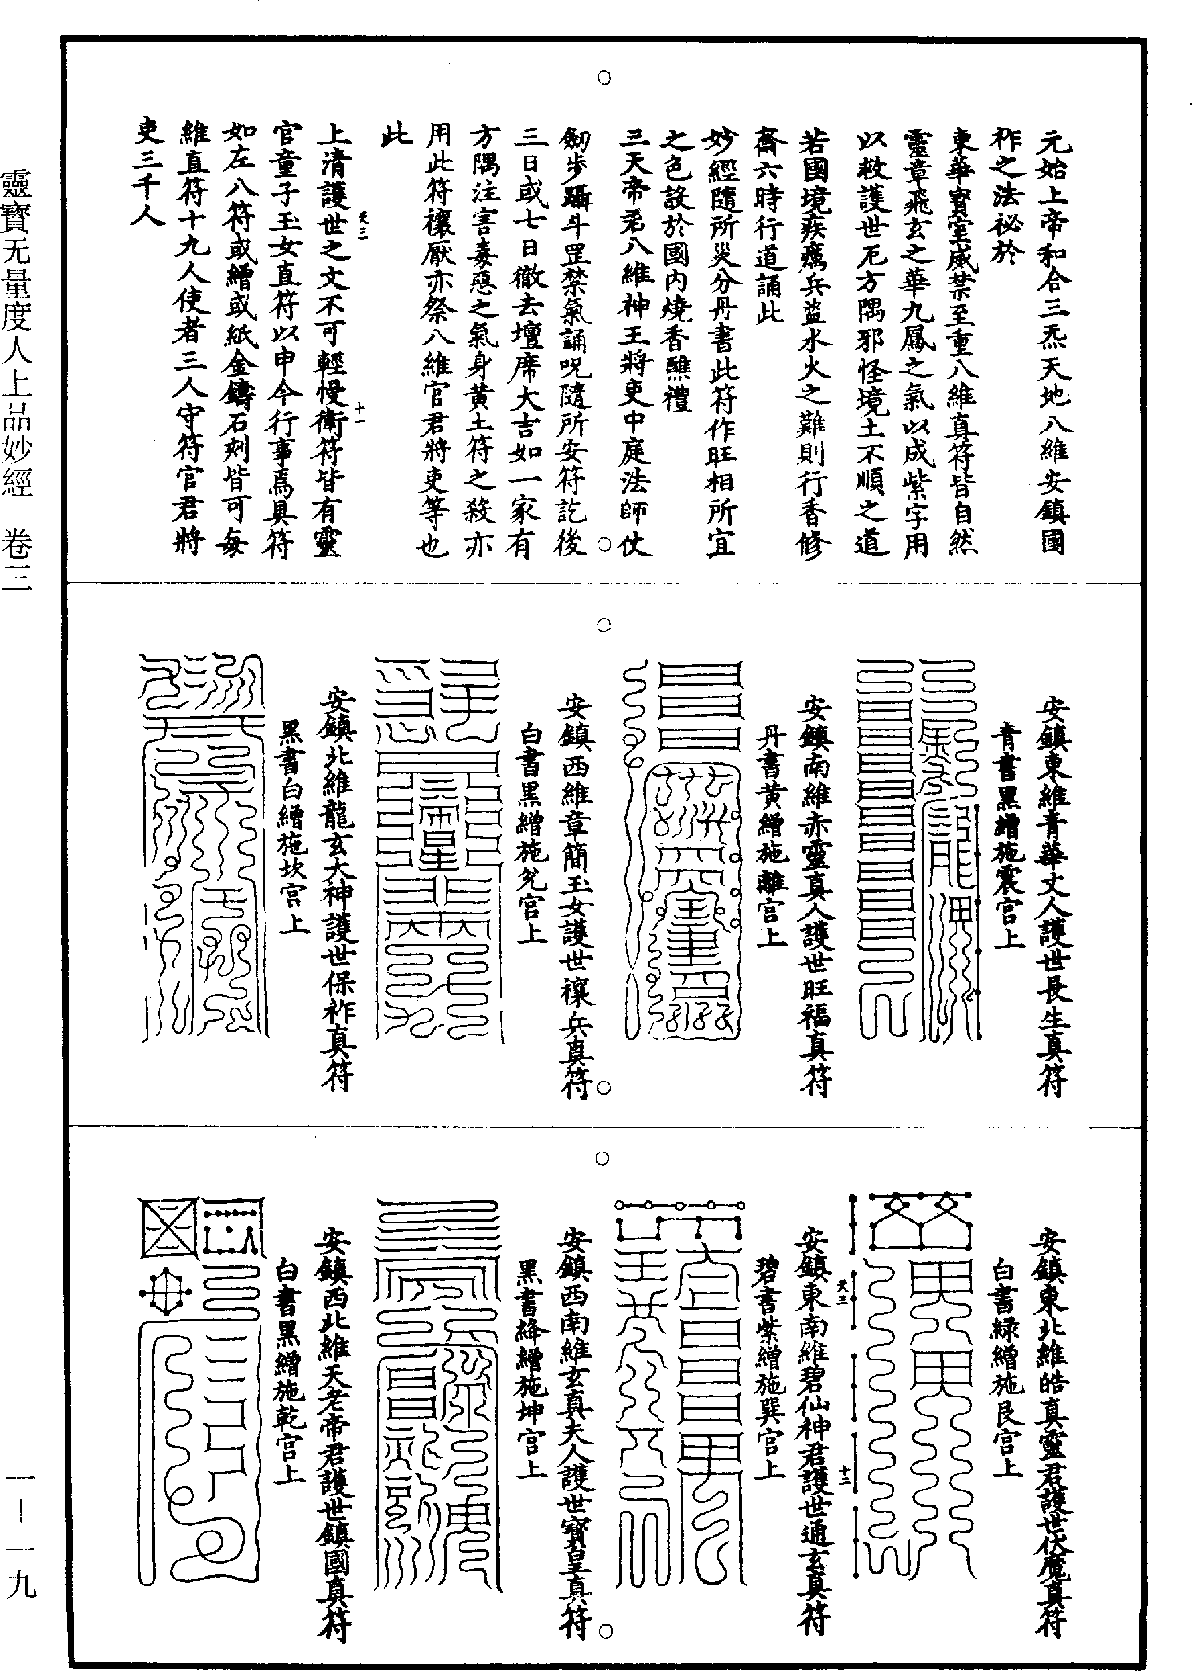 元始上帝和合三炁天地八維安鎮國
祚之法祕於
東華寶室威禁至重八維真符皆自然
靈章飛玄之華九鳳之氣以成紫字用
以救護世厄方隅邪怪境土不順之道
若國境疾癘兵盜水火之難則行香修
齋六時行道誦此
妙經隨所災分丹書此符作旺相所宜
之色設於國內燒香醮禮
三天帝君八維神王將吏中庭法師仗
劒步躡斗罡禁氣誦呪隨所安符訖後
三日或七日徹去壇席大吉如一家有
方隅注害毒惡之氣身黃土符之殺亦
用此符禳厭亦祭八維官君將吏等也
此
上清護世之文不可輕慢衛符皆有靈
官童子玉女直符以申令行事焉具符
如左八符或繒或紙金鑄石刻皆可每
維直符十九人使者三人守符官君將
吏三千人
天三
十一
安鎮東維青華丈人護世長生真符
青書黑繒施震宮上
安鎮南維赤靈真人護世旺福真符
丹書黃繒施離宮上
安鎮西維章簡玉女護世禳兵真符
白書黑繒施兌宮上
安鎮北維龍玄大神護世保祚真符
黑書白繒施坎宮上
安鎮東北維皓真靈君護世伏魔真符
白書綠繒施艮宮上
天三
十二
安鎮東南維碧仙神君護世通玄真符
碧書紫繒施巽宮上
安鎮西南維玄真夫人護世寶皇真符
黑書絳繒施坤宮上
安鎮西北維天老帝君護世鎮國真符
白書黑繒施乾宮上
靈寶无量度人上品妙經 卷三
一—一九